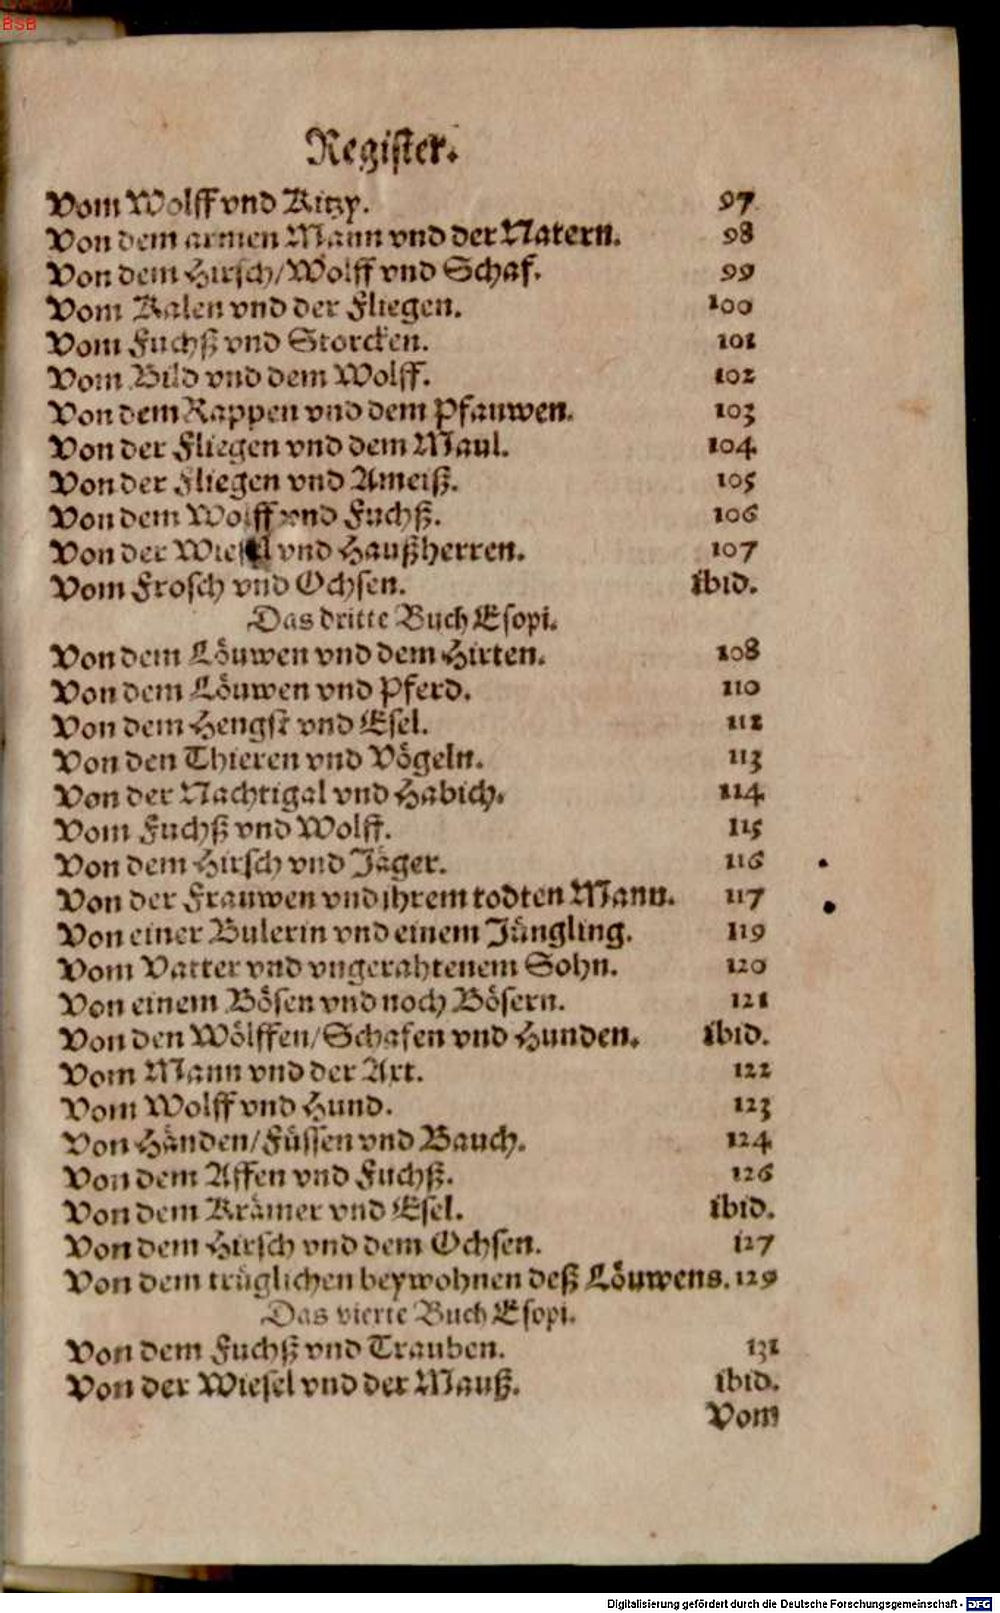 BSB
Register.
Vom Wolff vnd Kitzy. 97
Von dem armen Mann vnd der Natern. 98
Von dem Hirsch/Wolff vnd Schaf. 99
Vom Kalen vnd der Fliegen. 100
Vom Fuchß vnd Storcken. 101
Vom Bild vnd dem Wolff. 102
Von dem Rappen vnd dem Pfauwen. 103
Von der Fliegen vnd dem Maul. 104
Von der Fliegen vnd Ameiß. 105
Von dem Wolff vnd Fuchß. 106
Von der Wiesel vnd Haußherren. 107
Vom Frosch vnd Ochsen. ibid.
Das dritte Buch Esopi.
Von dem Löuwen vnd dem Hirten. 108
Von dem Löuwen vnd Pferd. 110
Von dem Hengst vnd Esel. 112
Von den Thieren vnd Vögeln. 113
Von der Nachtigal vnd Habich. 114
Vom Fuchß vnd Wolff. 115
Von dem Hirsch vnd Jäger. 116
Von der Frauwen vnd ihrem todten Mann. 117
Von einer Bulerin vnd einem Jüngling. 119
Vom Vatter vnd vngerahtenem Sohn. 120
Von einem Bösen vnd noch Bösern. 121
Von den Wölffen/Schafen vnd Hunden. ibid.
Vom Mann vnd der Axt. 122
Vom Wolff vnd Hund. 123
Von Händen/Füssen vnd Bauch. 124
Von dem Affen vnd Fuchß. 126
Von dem Krämer vnd Esel. ibid.
Von dem Hirsch vnd dem Ochsen. 127
Von dem trüglichen beywohnen deß Löuwens. 129
Das vierte Buch Esopi.
Von dem Fuchß vnd Trauben. 131
Von der Wiesel vnd der Mauß. ibid.
Vom
Digitalisierung gefördert durch die Deutsche Forschungsgemeinschaft - DFG